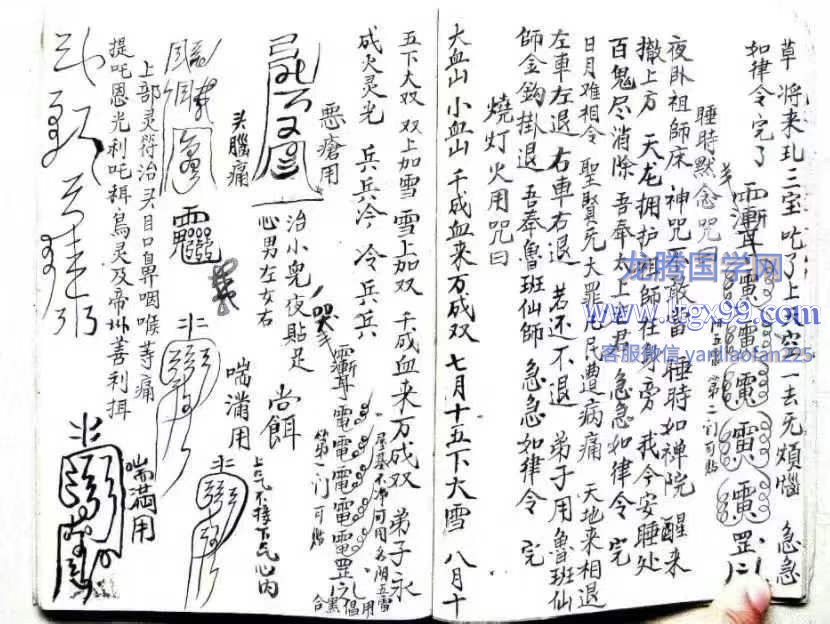 草将来𠃊三室吃了上天空一去无烦恼 急急
如律令完了
睡時默念咒曰
夜卧祖師床 神咒不敢當 睡時如禅院 醒来
撤上方 天龙拥护祖師在身旁 我今安睡处
百鬼尽消除 吾奉太上老君 急急如律令 完
日月难相令 聖賢无大罪 凡民遭病痛 天地来相退
左車左退 右車右退 若还不退 弟子用魯班仙
師金鈎掛退 吾奉魯班仙師 急急如律令 完
燒灯火用咒曰
大血山 小血山 千成血来万成双 七月十五下大雪 八月十
五下大双 双上加雪 雪上加双 千成血来万成双 弟子永
成火灵光 兵兵冷 冷兵兵
第二行可點
第一行可點
合黑倡用
恶瘡用
治小兒夜哭貼足
心男左女右
尝餌
上气不接下气心内
喘滿用
头腦痛
喘满用
上部灵符治头目口鼻咽喉等痛
提吒恩光利吒
龙腾国学网
www.lgx99.com
客服微信 yanliaofan225